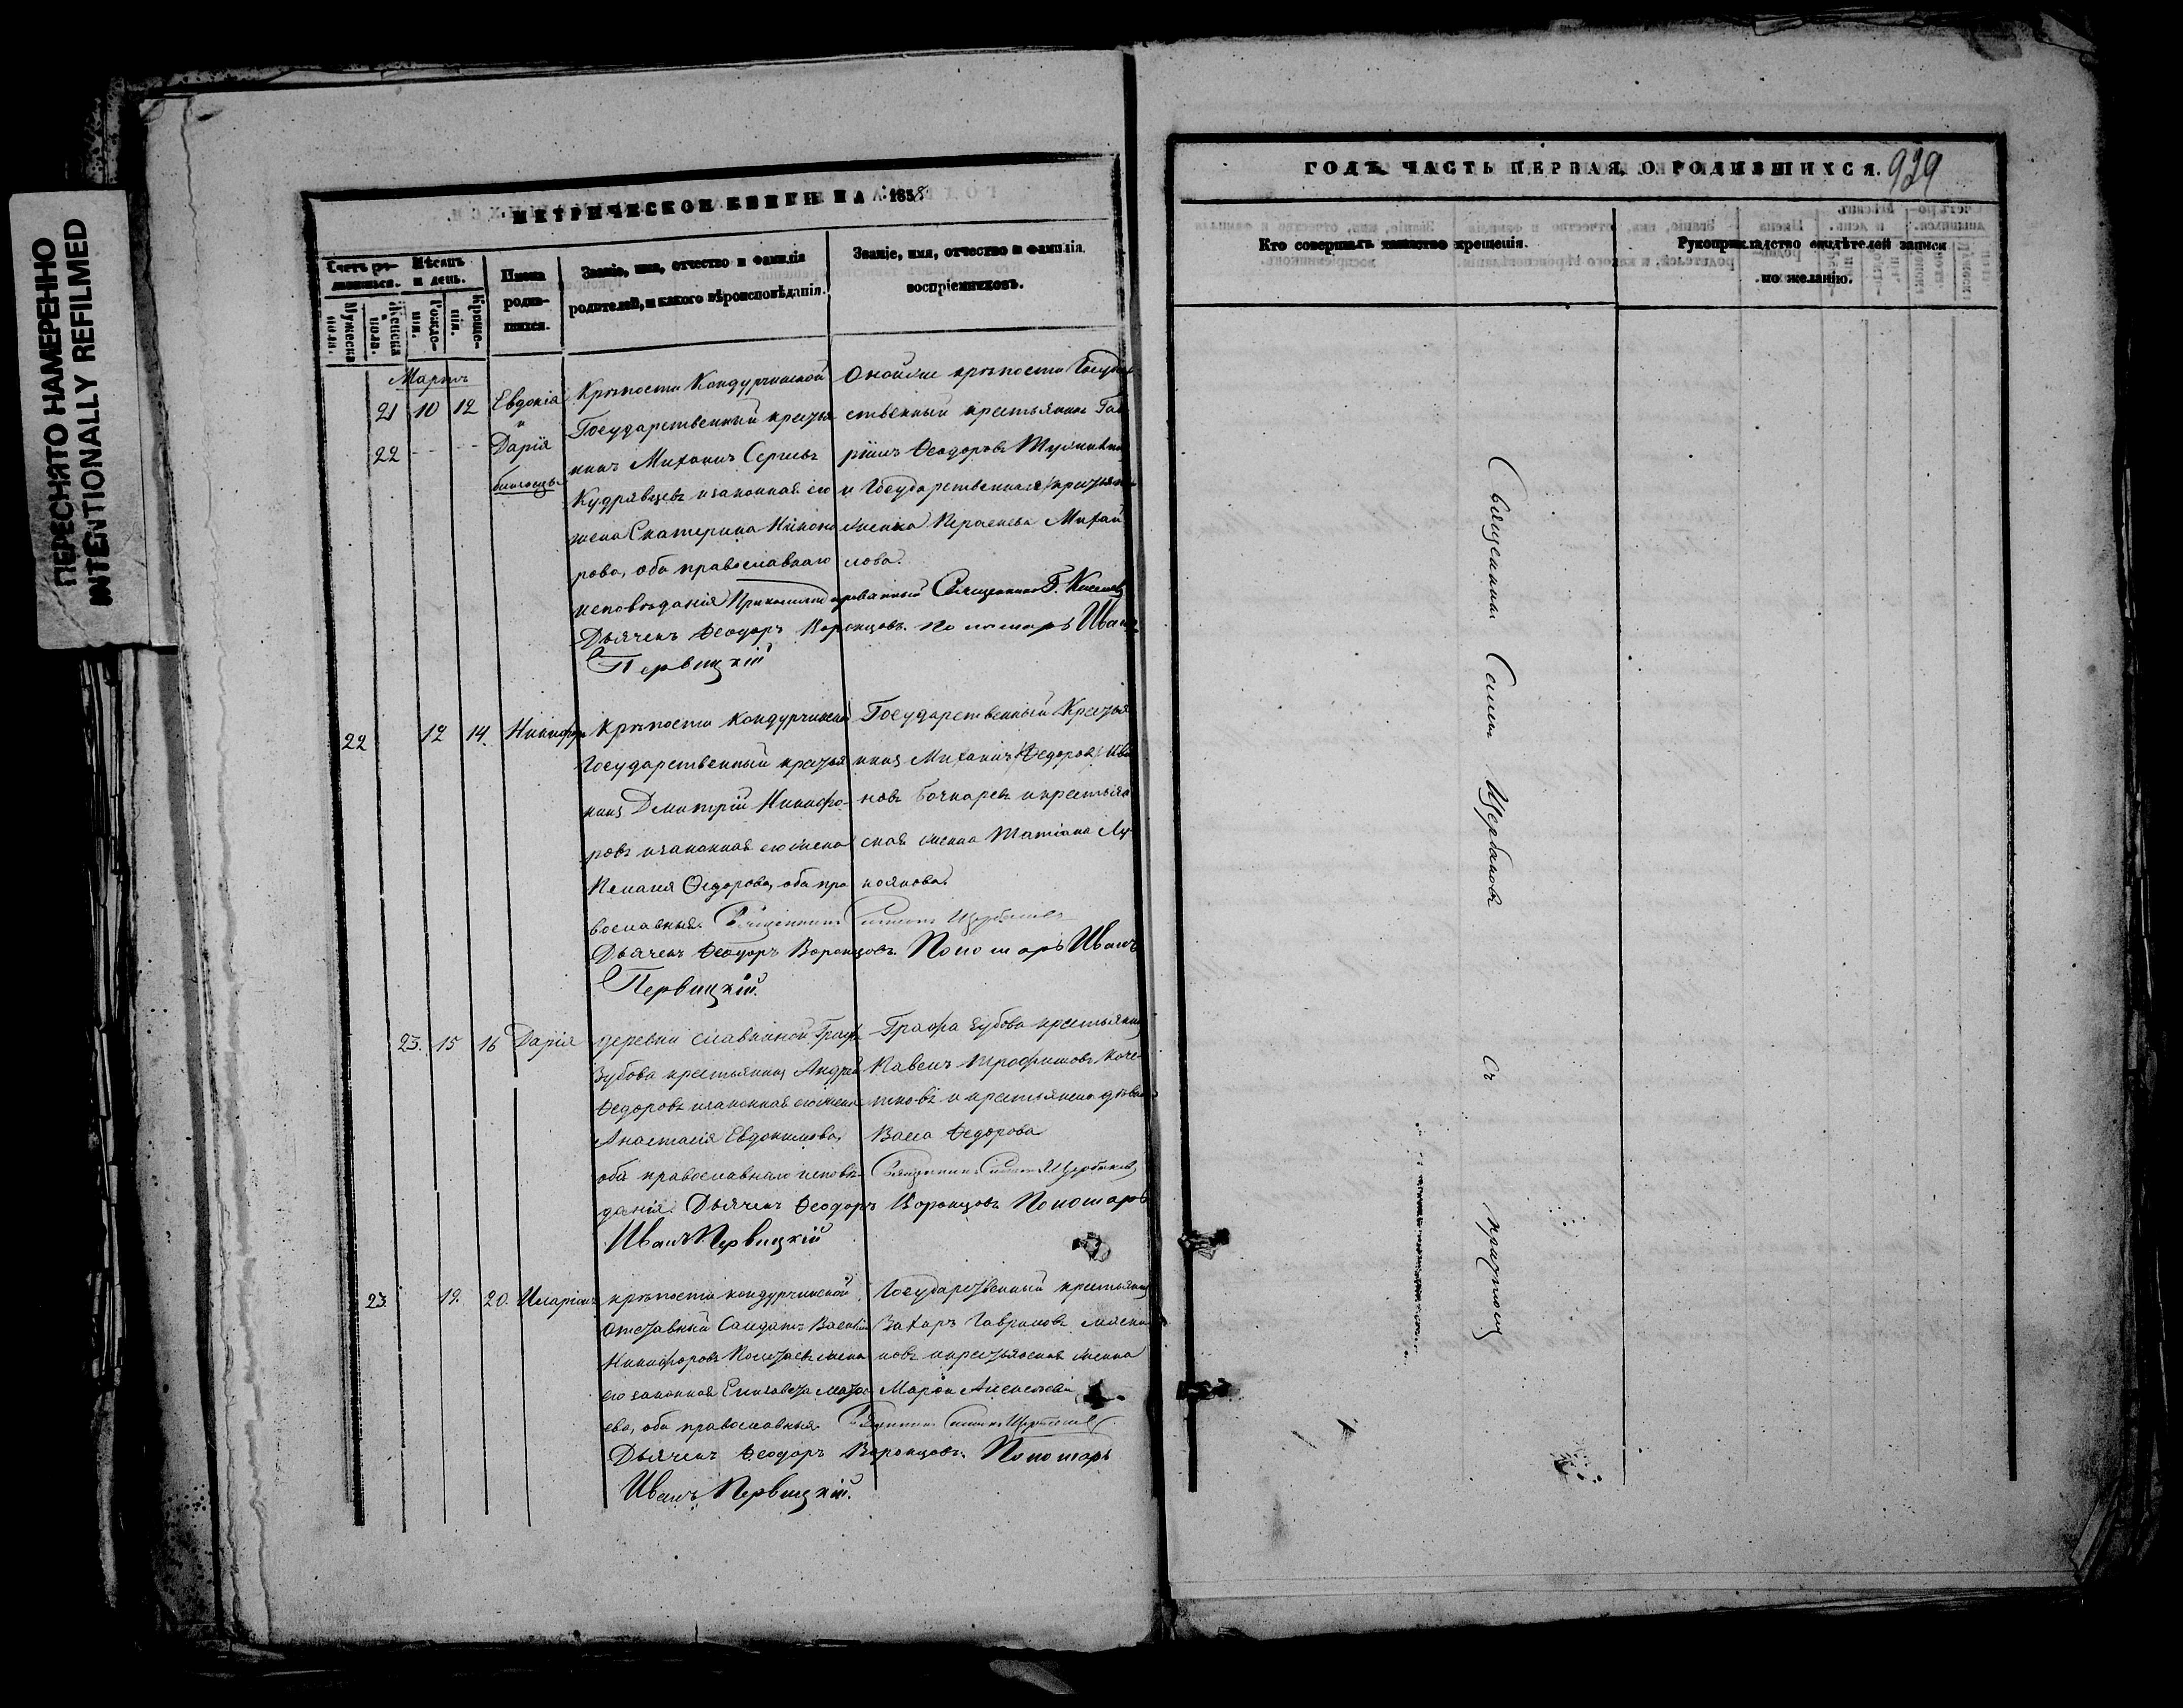 ПЕРЕСНЯТО НАМЕРЕННО
INTENTIONALLY REFILMED
МЕТРИЧЕСКОЙ КНИГИ НА 1858
Счетъ родившихся.
Мѣсяцъ и день.
Имена родившихся.
Званіе, имя, отчество и фамилія
родителей, и какого вѣроисповѣданія.
Званіе, имя, отчество и фамилія
воспріемниковъ.
Мужеска пола.
Женска пола.
Рожденія.
Крещенія.
Мартъ
21 10 12 Евдокія
и
22 - - Дарія
близнецы
Крѣпости Кондурчинской
Государственный крестья
нинъ Михаилъ Сергѣевъ
Кудрявцевъ и законная его
жена Екатерина Никано
рова, оба православнаго
исповѣданія
Оной же крѣпости Государ
ственный крестьянинъ Гав
ріилъ Феодоровъ
и Государственная крестьян
женка Михай
лова.
Священникъ
Дьячекъ Феодоръ Воронцовъ. Пономарь Иванъ
Первицкій
22 12 14. Никифоръ
Крѣпости Кондурчинской
Государственный крестья
нинъ Димитрій Никифо-
ровъ и законная его жена
Пелагія Федорова, оба пра
вославныя.
Государственный Крестья
нинъ Михаилъ Федоровъ Ива
новъ Бочкаревъ и крестьян
ская женка Татіана Лу
коянова.
Священникъ Симеонъ Щербаковъ
Дьячекъ Феодоръ Воронцовъ. Пономарь Иванъ
Первицкій.
23. 15 16 Дарія
деревни Славкиной Графа
Зубова крестьянинъ Андрей
Федоровъ и законная его жена
Анастасія Евдокимова,
оба православнаго исповѣ-
данія.
Графа Зубова крестьянинъ
Павелъ Трофимовъ Коче-
тковъ и крестьянска дѣвка
Васса Федорова
Священникъ Симеонъ Щербаковъ
Дьячекъ Феодоръ Воронцовъ Пономарь
Иванъ Первицкій
23. 19. 20. Иларіонъ
крѣпости кондурчинской
Отставный Солдатъ Василій
Никифоровъ жена
его законная Елизавета
ева, оба православныя.
Государственный крестьянинъ
Захаръ Гавриловъ
новъ и крестьянская женка
Марѳа Алексѣева
Священникъ Симеонъ Щербаковъ
Дьячекъ Феодоръ Воронцовъ. Пономарь
Иванъ Первицкій.
ГОДЪ. ЧАСТЬ ПЕРВАЯ, О РОДИВШИХСЯ. 929
Кто совершалъ таинство крещенія.
Рукоприкладство свидѣтелей записи
по желанію.
Священникъ Симеонъ Щербаковъ съ причтомъ